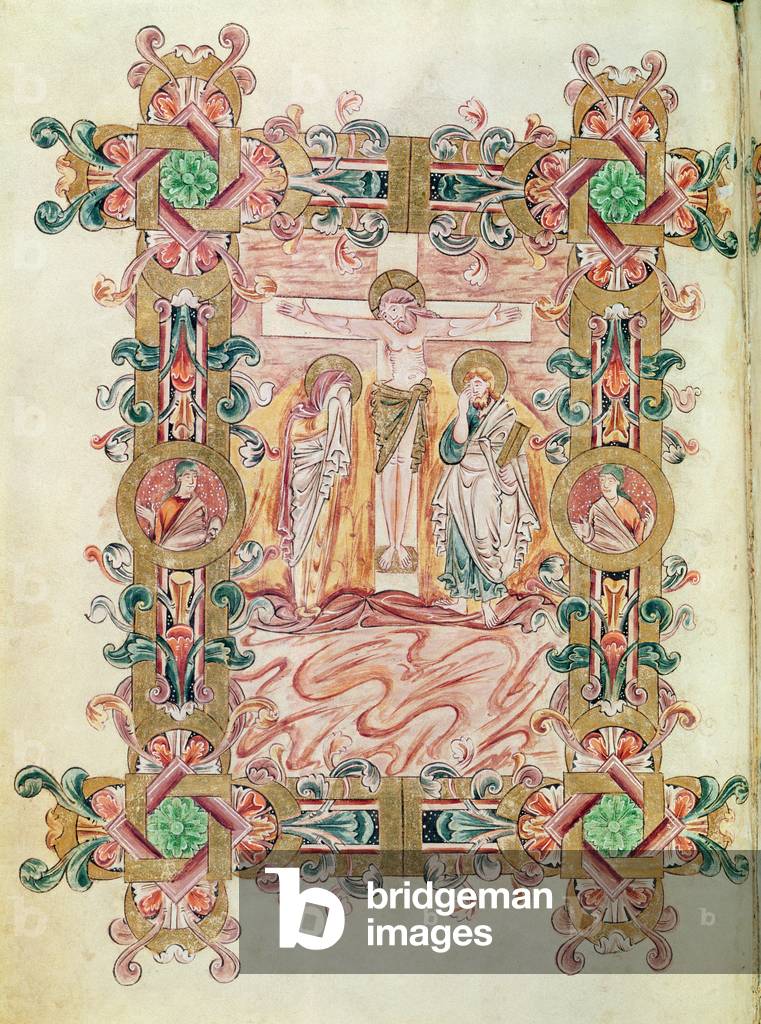 b
bridgeman
images